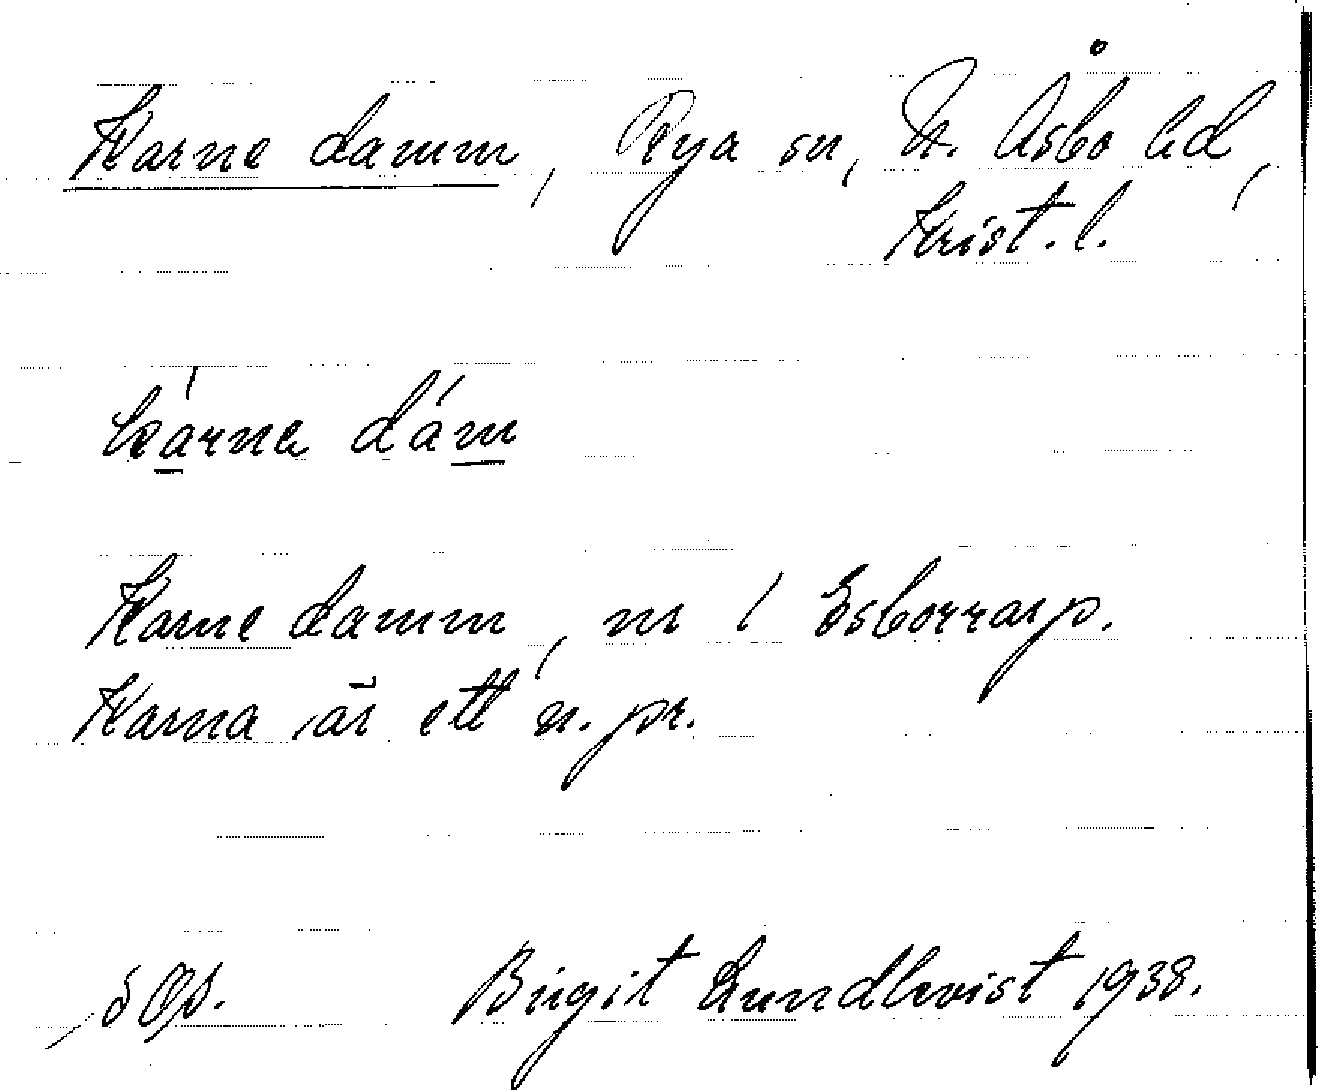 Karne damm, Rya sn, N. Åsbo hd,
Krist. l.
kárna dám
Karne damm, nr 1 Esborrarp.
Karna är ett n. pr.
Birgit Lundkvist 1938.